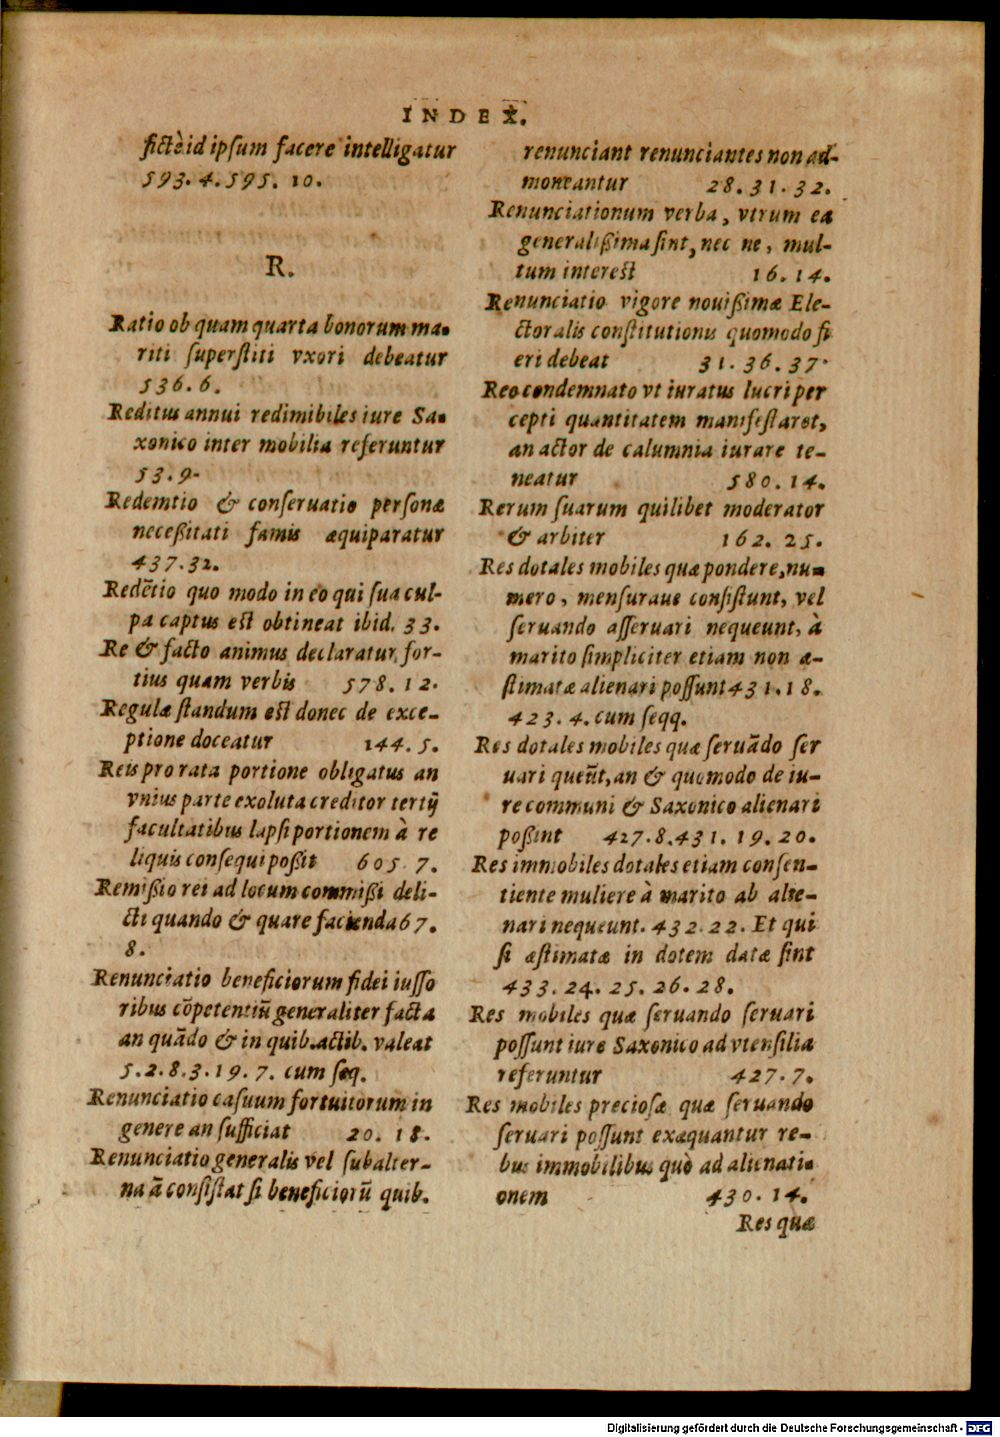 INDEX.
fictè id ipſum facere intelligatur
593. 4. 595. 10.
R.
Ratio ob quam quarta bonorum ma-
riti ſuperſtiti vxori debeatur
536. 6.
Reditus annui redimibiles iure Sa-
xonico inter mobilia referuntur
53. 9.
Redemtio & conſeruatio perſonæ
neceßitati famis æquiparatur
437. 32.
Redẽtio quo modo in eo qui ſua cul-
pa captus eſt obtineat ibid. 33.
Re & facto animus declaratur for-
tius quam verbis 578. 12.
Regulæ ſtandum eſt donec de exce-
ptione doceatur 144. 5.
Reis pro rata portione obligatus an
vnius parte exoluta creditor tertij
facultatibus lapſi portionem à re
liquis conſequi poßit 605. 7.
Remißio rei ad locum commißi deli-
cti quando & quare facienda 67.
8.
Renunciatio beneficiorum fidei iuſſo
ribus cõpetentiũ generaliter facta
an quãdo & in quib. actib. valeat
5. 2. 8. 3. 19. 7. cum ſeq.
Renunciatio caſuum fortuitorum in
genere an ſufficiat 20. 18.
Renunciatio generalis vel ſubalter-
na ã conſiſtat ſi beneficiorũ quib.
renunciant renunciantes non ad-
moneantur 28. 31. 32.
Renunciationum verba, vtrum ea
generalißima ſint, nec ne, mul-
tum intereſt 16. 14.
Renunciatio vigore nouißimæ Ele-
ctoralis conſtitutionis quomodo fi
eri debeat 31. 36. 37.
Reo condemnato vt iuratus lucri per
cepti quantitatem manifeſtaret,
an actor de calumnia iurare te-
neatur 580. 14.
Rerum ſuarum quilibet moderator
& arbiter 162. 25.
Res dotales mobiles quæ pondere, nu-
mero, menſuraue conſiſtunt, vel
ſeruando aſſeruari nequeunt, à
marito ſimpliciter etiam non æ-
ſtimatæ alienari poſſunt 431. 18.
423. 4. cum ſeqq.
Res dotales mobiles quæ ſeruãdo ſer
uari queũt, an & quomodo de iu-
re communi & Saxonico alienari
poßint 427. 8. 431. 19. 20.
Res immobiles dotales etiam conſen-
tiente muliere à marito ab alie-
nari nequeunt. 432. 22. Et qui
ſi æſtimatæ in dotem datæ ſint
433. 24. 25. 26. 28.
Res mobiles quæ ſeruando ſeruari
poſſunt iure Saxonico ad vtenſilia
referuntur 427. 7.
Res mobiles precioſæ quæ ſeruando
ſeruari poſſunt exæquantur re-
bus immobilibus quò ad alienati-
onem 430. 14.
Res quæ
Digitalisierung gefördert durch die Deutsche Forschungsgemeinschaft - DFG